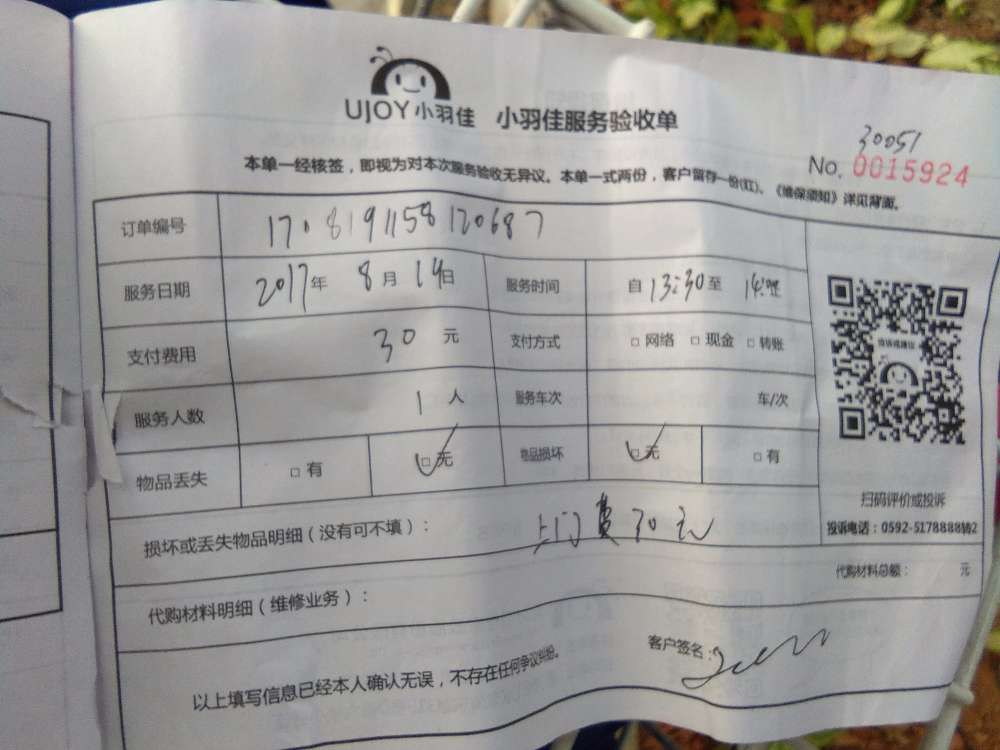 UJOY小羽佳 小羽佳服务验收单
30051
No. 0015924
本单一经核签，即视为对本次服务验收无异议。本单一式两份，客户留存一份(红)、《维保须知》详见背面。
订单编号 1708191158120687
服务日期 2017年 8月 19日 服务时间 自 13:30 至
支付费用 30 元 支付方式 □ 网络 □ 现金 □ 转账
服务人数 1 人 服务车次 车/次
物品丢失 □ 有 □ 无 物品损坏 □ 无 □ 有
扫码评价或投诉
投诉电话：0592-5178888转2
损坏或丢失物品明细（没有可不填）： 上门费30元
代购材料总额： 元
代购材料明细（维修业务）：
客户签名：
以上填写信息已经本人确认无误，不存在任何争议纠纷。